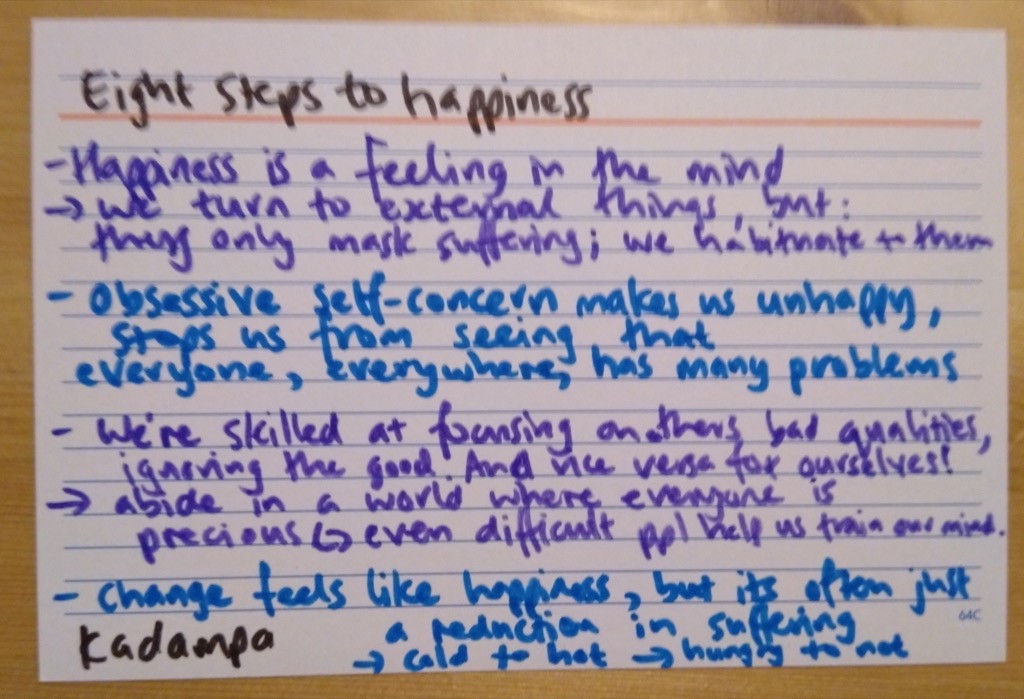 Eight steps to happiness
- Happiness is a feeling in the mind
→ we turn to external things, but:
they only mask suffering; we habituate to them
- Obsessive self-concern makes us unhappy,
stops us from seeing that
everyone, everywhere, has many problems
- We're skilled at focusing on others bad qualities,
ignoring the good. And vice versa for ourselves!
→ abide in a world where everyone is
precious ↪ even difficult ppl help us train our mind.
- Change feels like happiness, but its often just
a reduction in suffering
→ cold to hot → hungry to not
Kadampa
64C